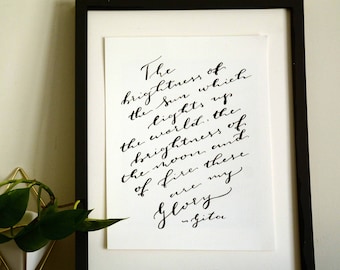 The
brightness of
the sun which
lights up
the world. the
brightness of
the moon and
of fire these
are my
Glory
~ Gita